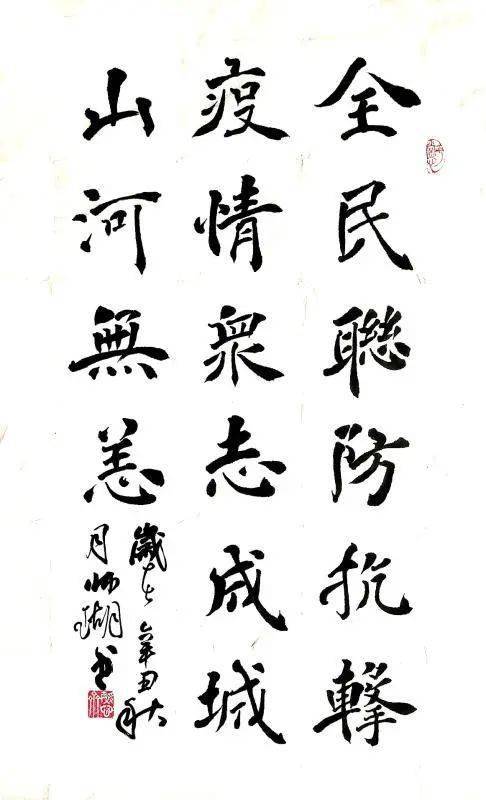 全民聯防抗擊
疫情衆志成城
山河無恙
歲在辛丑秋
月書